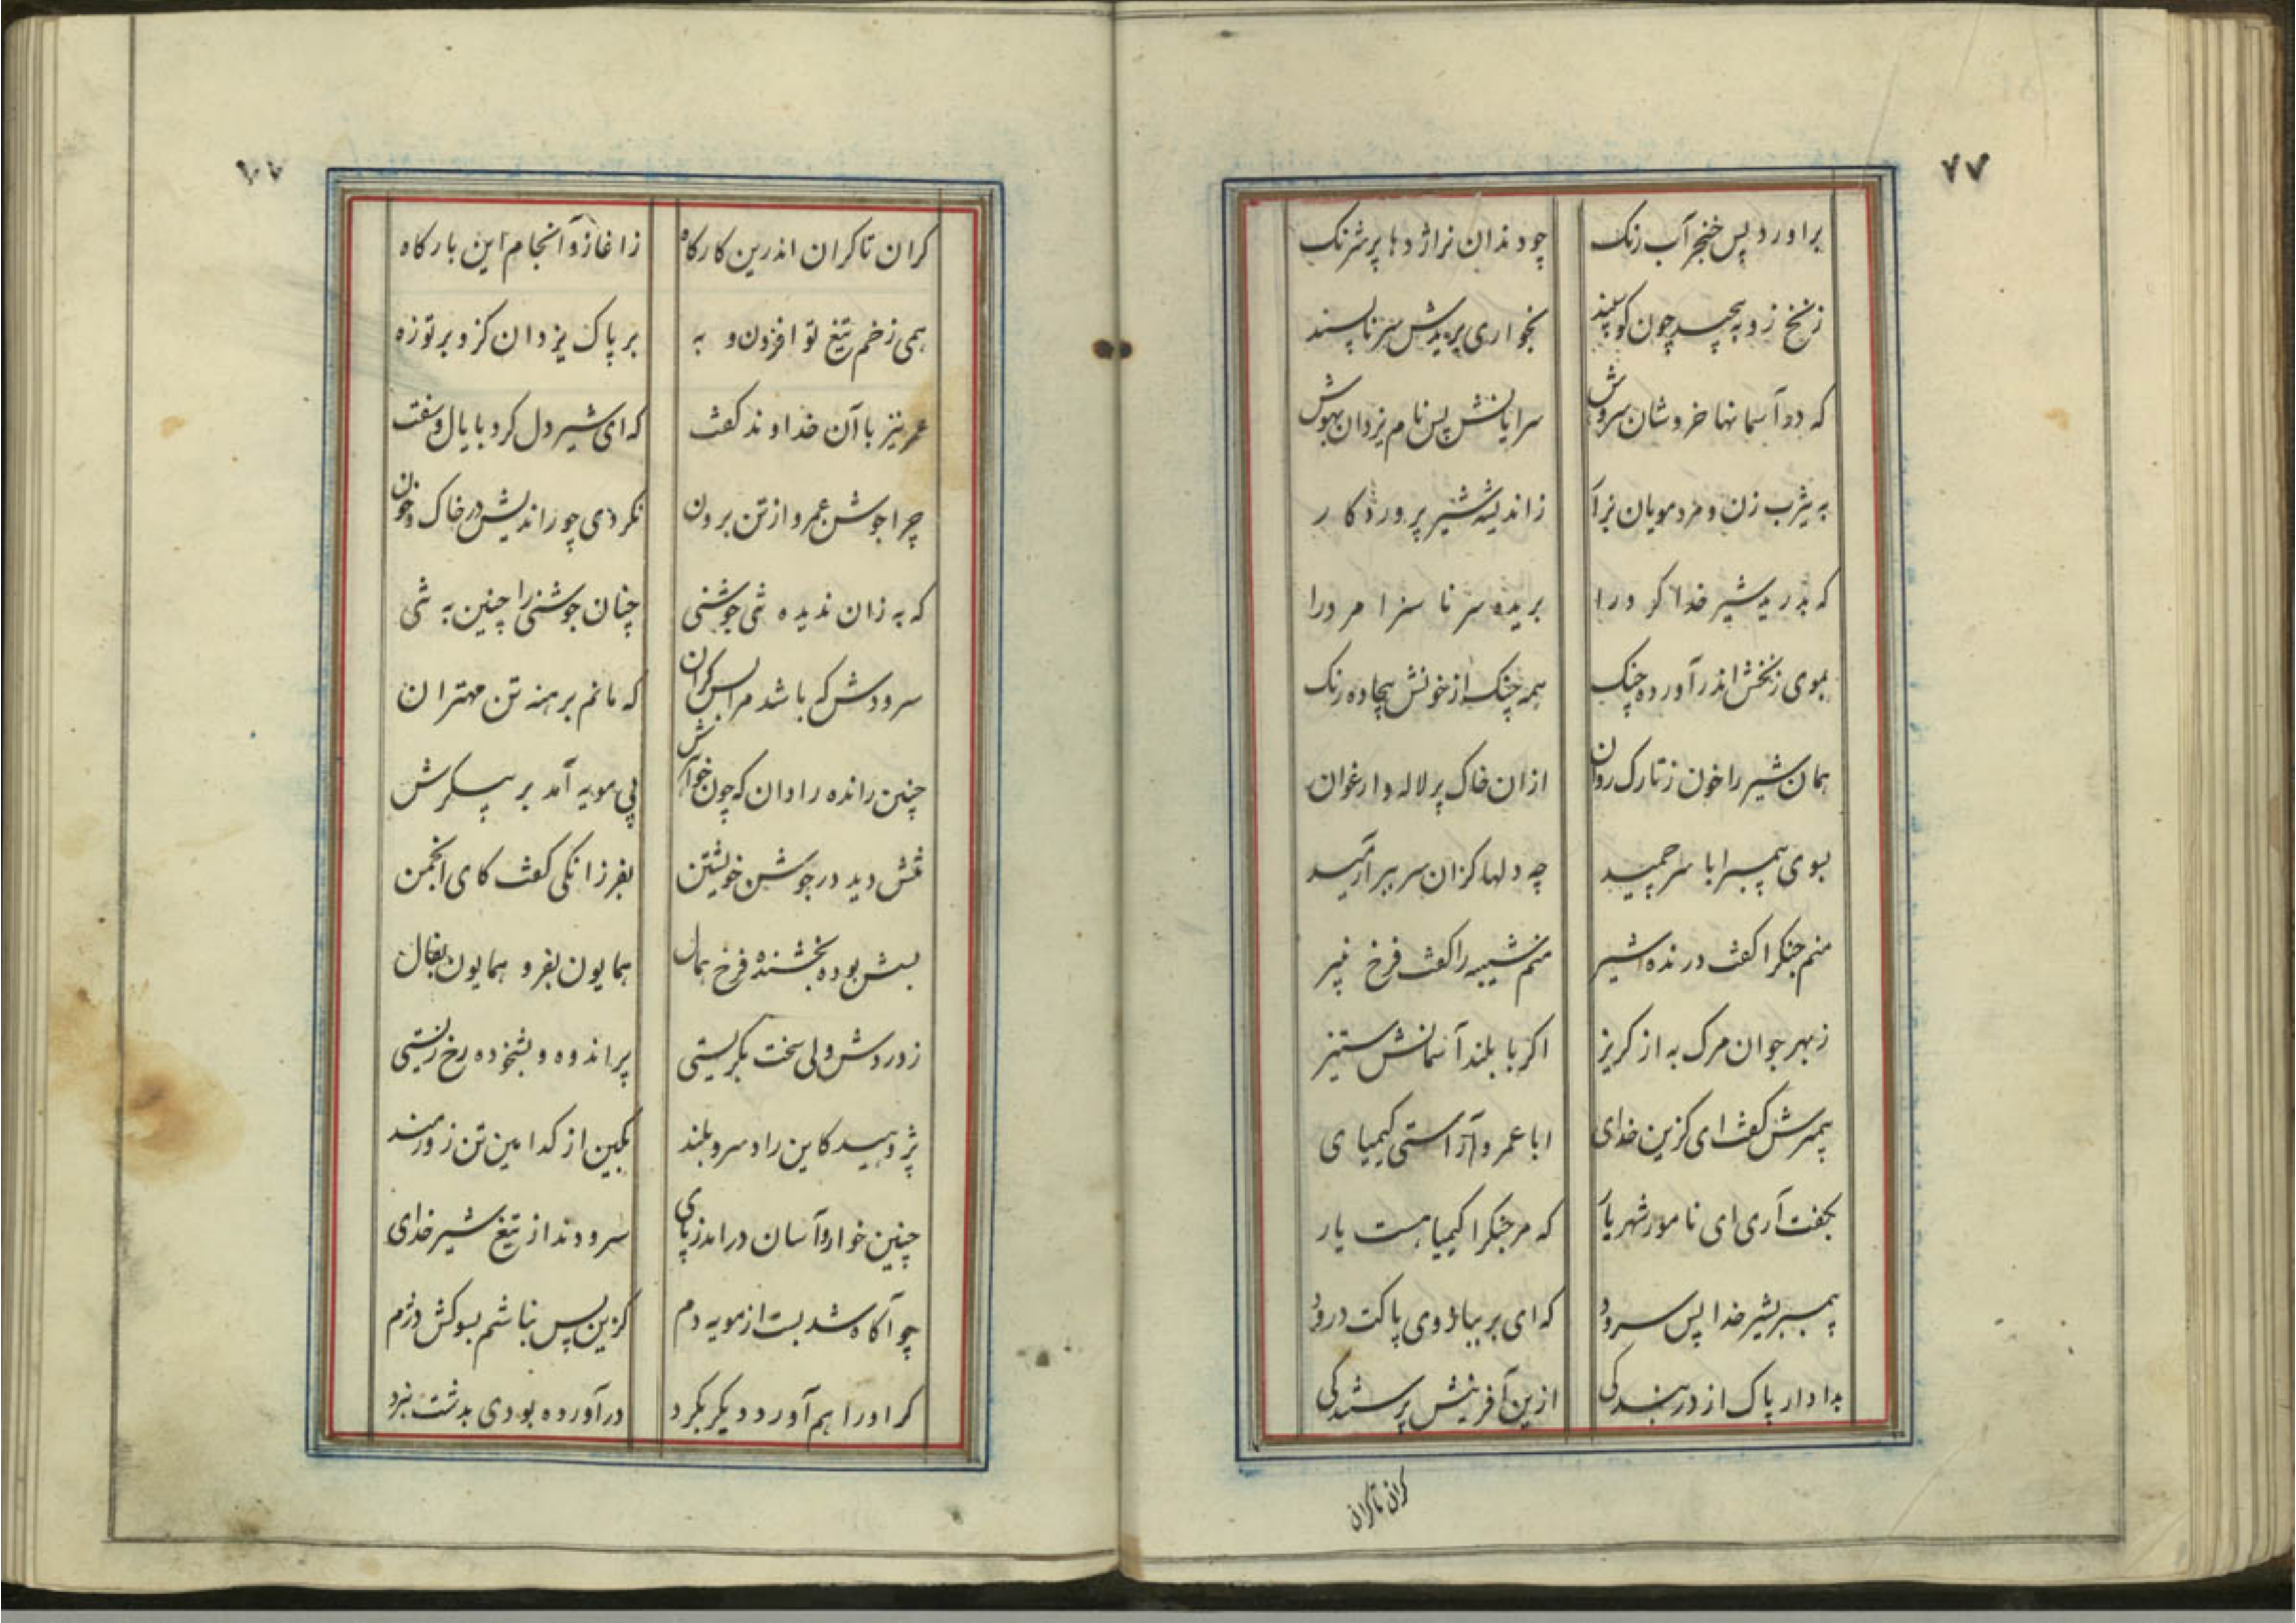 ۷۷
براورد پس خنجر آب رنک چو دندان نراژدها پر شرنک
زنخ زو به پیچید چون کوسپند بخواری بریدش سر ناپسند
که در آسمانها خروشان سروش سرایانش پس نام یزدان بهوش
به یثرب زن و مرد مویان بزار ز اندیشه شیر پروردکار
که بدرید شیر خدا کر ورا بریده سر ناسزا مر ورا
بموی زنخش اندر آورده چنک همه چنک از خونش بیجاده رنک
همان شیر را خون ز تارک روان ازان خاک پر لاله و ارغوان
بسوی پیمبر ابا سر چمید چه دلها کزان سر ببر آرمید
منم جنکرا کفت درنده شیر منم شیبه را کفت فرخ نبیر
ز بهر جوان مرک به از کریز اکر با بلند آسمانش ستیز
پیمبرش کفت ای کزین خدای ابا عمرو آراستی کیمیای
بگفت آری ای نامور شهریار که مر جنکرا کیمیا هست یار
پیمبر بشیر خدا پس سرود که ای بر بیازوی پاکت درود
بدادار پاک از در بندکی ازین آفرینش پرستندکی
کران تاکران
کران تا کران اندرین کارکاه ز اغاز و آنجام این بارکاه
همی زخم تیغ تو افزون و به بر پاک یزدان کزو بر تو زه
عمر نیز با آن خداوند کفت که ای شیر دل کرد با یال و سفت
چرا جوشن عمرو از تن برون نکردی چو راندیش در خاک و خون
که به زان ندیده تنی جوشنی چنان جوشنی را چنین به تنی
سرودش که باشد مرا بس کران که مانم برهنه تن مهتران
چنین رانده راوان که چون خواهرش پی مویه آمد بر پیکرش
تنش دید در جوشن خویشتن بفرزانکی کفت کای انجمن
بسش بوده بخشنده فرخ همال همایون بفر و همایون بفال
ز دردش ولی سخت بکریستی پر اندوه و بشخوده رخ زیستی
پژوهید کاین راد سرو بلند بکین از کدامین تن زورمند
چنین خوار و آسان درامد ز پای سرودند از تیغ شیر خدای
چو آکاه شد بست از مویه دم کزین پس نباشم بسوکش دژم
کر او را هم آورد دیکر بکرد درآورده بودی بدشت نبرد